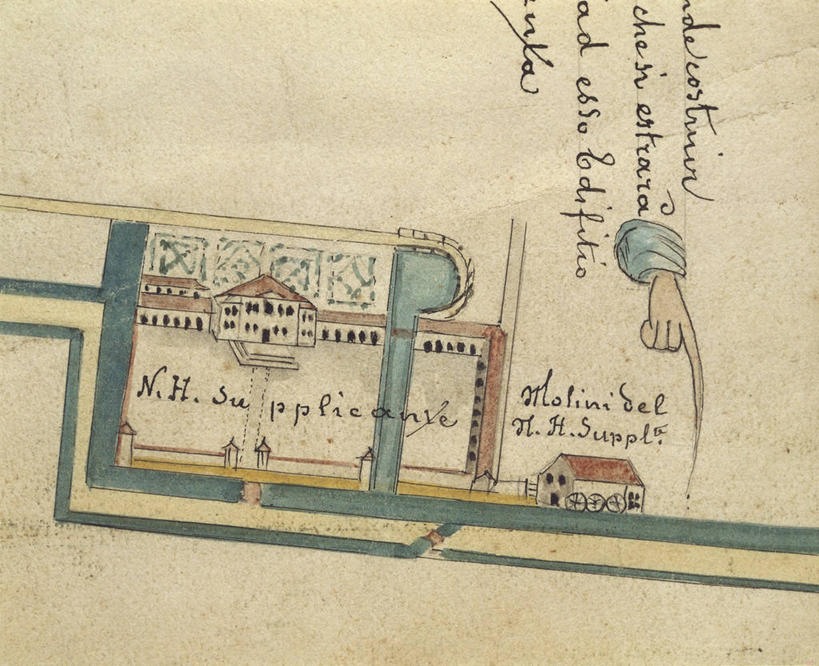 nde costruir
che si estrarà
ad esso Edifitio
N.H. Supplicante
Molini del
N.H. Suppl.te